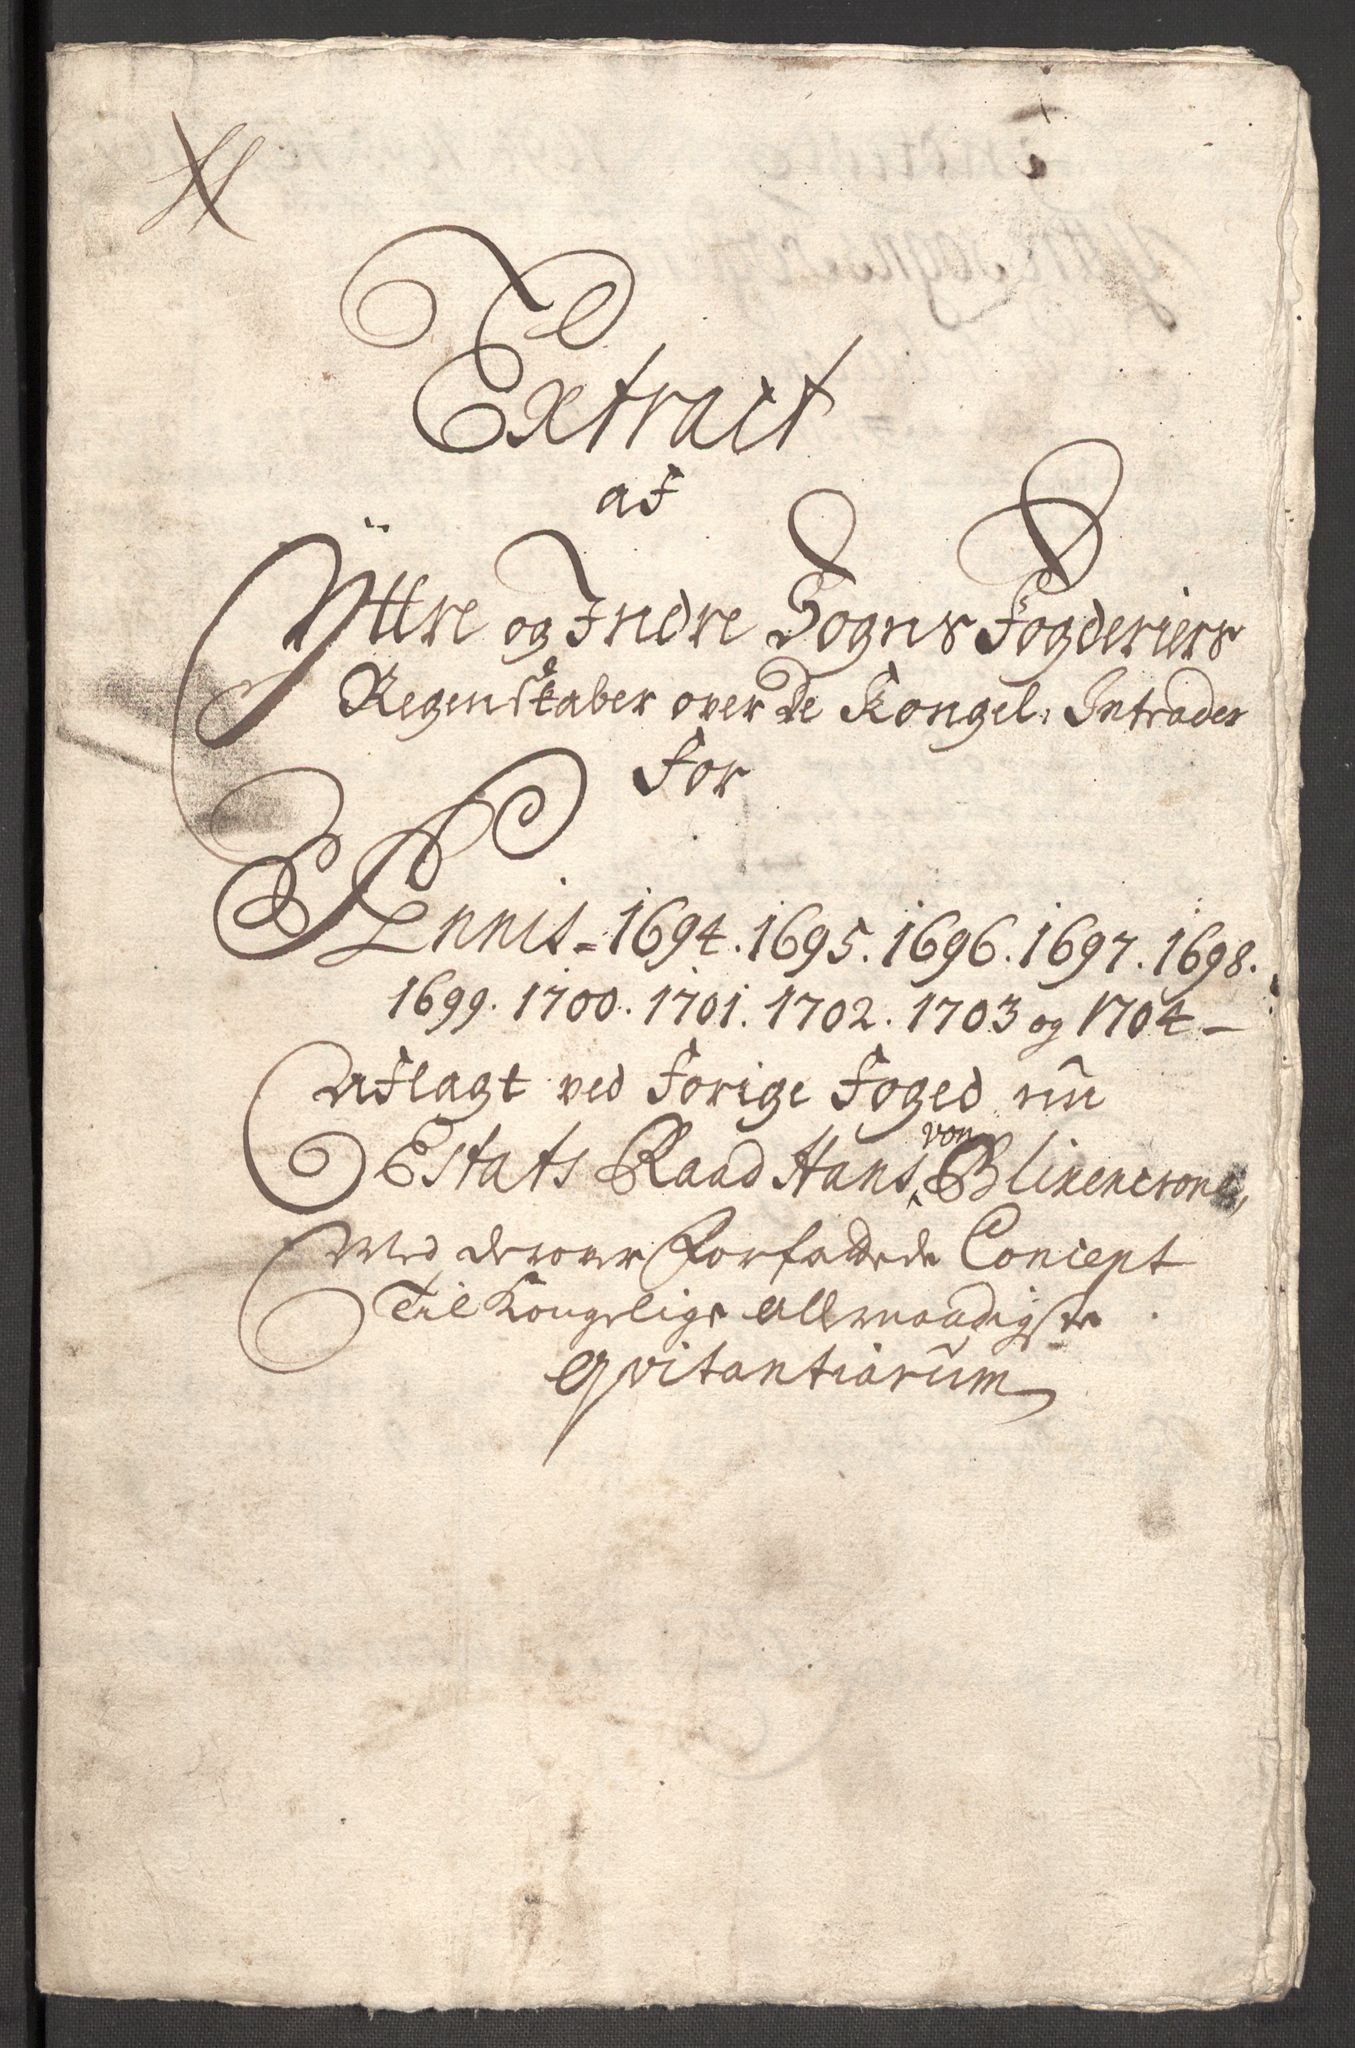 Extract
af
Ÿttre og Indre Sogns Fogderiers
Regenskaber over de Kongel: Intrader
For
Annis - 1694. 1695. 1696. 1697. 1698.
1699. 1700. 1701. 1702. 1703 og 1704 -
Aflagt ved Forige Foged nu
Estats Raad Hans von Blixencrone,
Med derover Forfattede Concept
Til Kongelige allernaadigste
Qvitantiarum